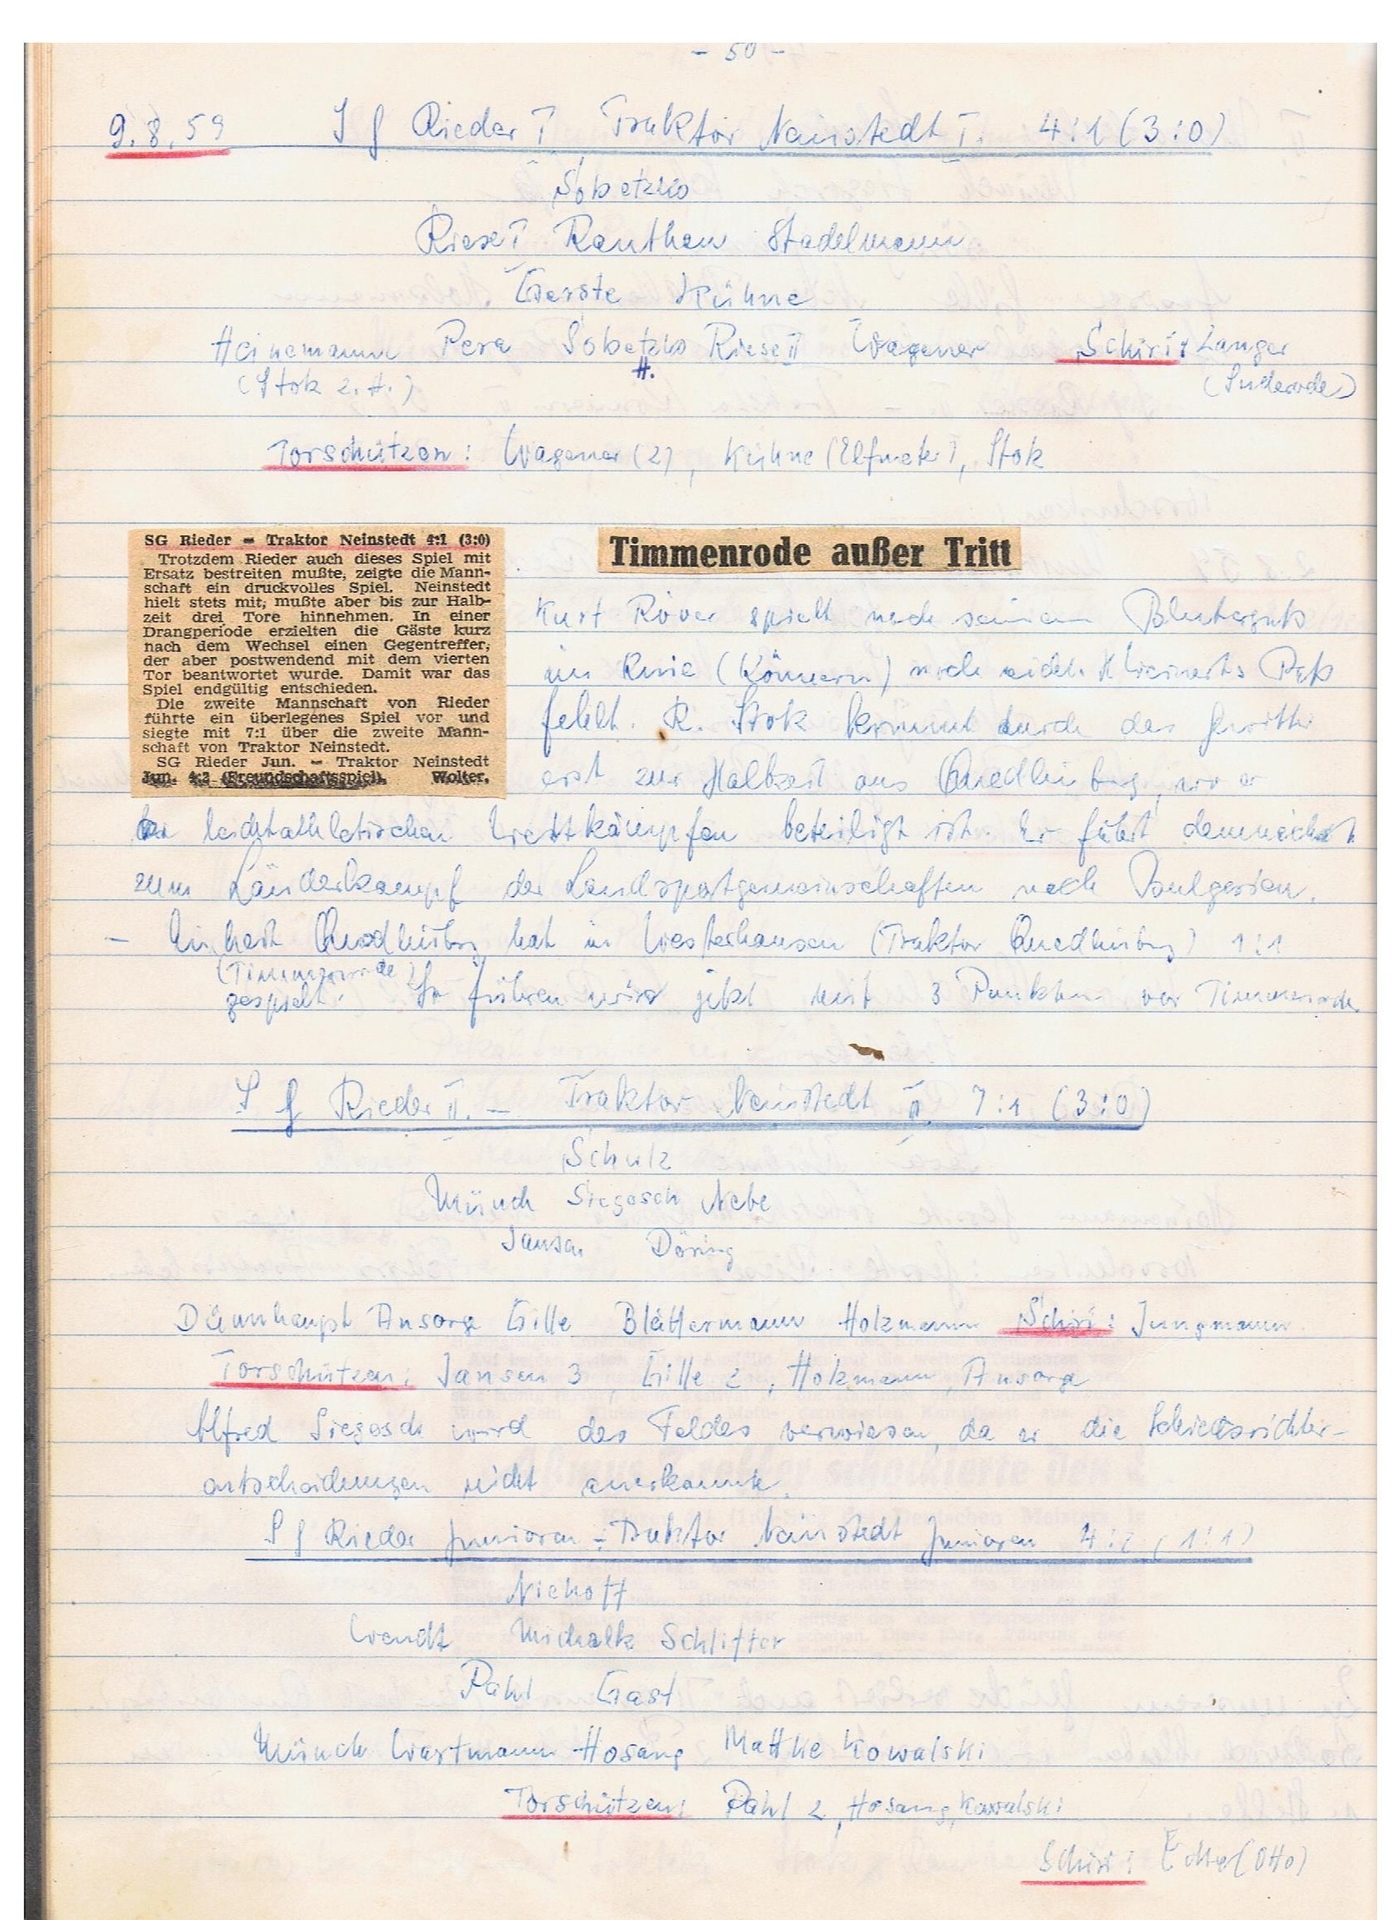 - 50 -
9.8.59 S G Rieder I Traktor Neinstedt I. 4:1 (3:0)
Sobetzko
Riese I Ranthan Stadelmann
Gerste Kühne
Heinemann Pera Sobetzko Riese II Wagener Schiri: Langer
(Stok z. H.) H. (Suderode)
Torschützen: Wagener (2), Kühne (Elfmeter), Stok
SG Rieder – Traktor Neinstedt 4:1 (3:0)
Trotzdem Rieder auch dieses Spiel mit
Ersatz bestreiten mußte, zeigte die Mann-
schaft ein druckvolles Spiel. Neinstedt
hielt stets mit, mußte aber bis zur Halb-
zeit drei Tore hinnehmen. In einer
Drangperiode erzielten die Gäste kurz
nach dem Wechsel einen Gegentreffer,
der aber postwendend mit dem vierten
Tor beantwortet wurde. Damit war das
Spiel endgültig entschieden.
Die zweite Mannschaft von Rieder
führte ein überlegenes Spiel vor und
siegte mit 7:1 über die zweite Mann-
schaft von Traktor Neinstedt.
SG Rieder Jun. – Traktor Neinstedt
Jun. 4:2 (Freundschaftsspiel). Wolter.
Timmenrode außer Tritt
Kurt Röver spielt nach seinem
im Knie (Könnern) noch nicht. Kleinerts Paß
fehlt. R. Stok kommt durch das Gewitter
erst zur Halbzeit aus Quedlinburg, wo er
an leichtathletischen Wettkämpfen beteiligt ist. Er fährt demnächst
zum Länderkampf der Landsportgemeinschaften nach Bulgarien.
– Einheit Quedlinburg hat in Westerhausen (Traktor Quedlinburg) 1:1
(Timmenrode)
gespielt. So führen wir jetzt mit 3 Punkten vor Timmenrode.
S G Rieder II. – Traktor Neinstedt II 7:1 (3:0)
Schulz
Münch Siegosch Nebe
Jansen Döring
Dünnhaupt Ansorge Gille Blättermann Holzmann Schiri: Jungmann
Torschützen: Jansen 3, Gille 2, Holzmann, Ansorge
Alfred Siegosch wird des Feldes verwiesen, da er die Schiedsrichter-
entscheidungen nicht anerkannte.
S G Rieder Junioren – Traktor Neinstedt Junioren 4:2 (1:1)
Niehoff
Wendt Michalk Schlifter
Pahl Gast
Münch Wartmann Hosang Mattke Kowalski
Torschützen: Pahl 2, Hosang, Kowalski
Schiri: (Otto)